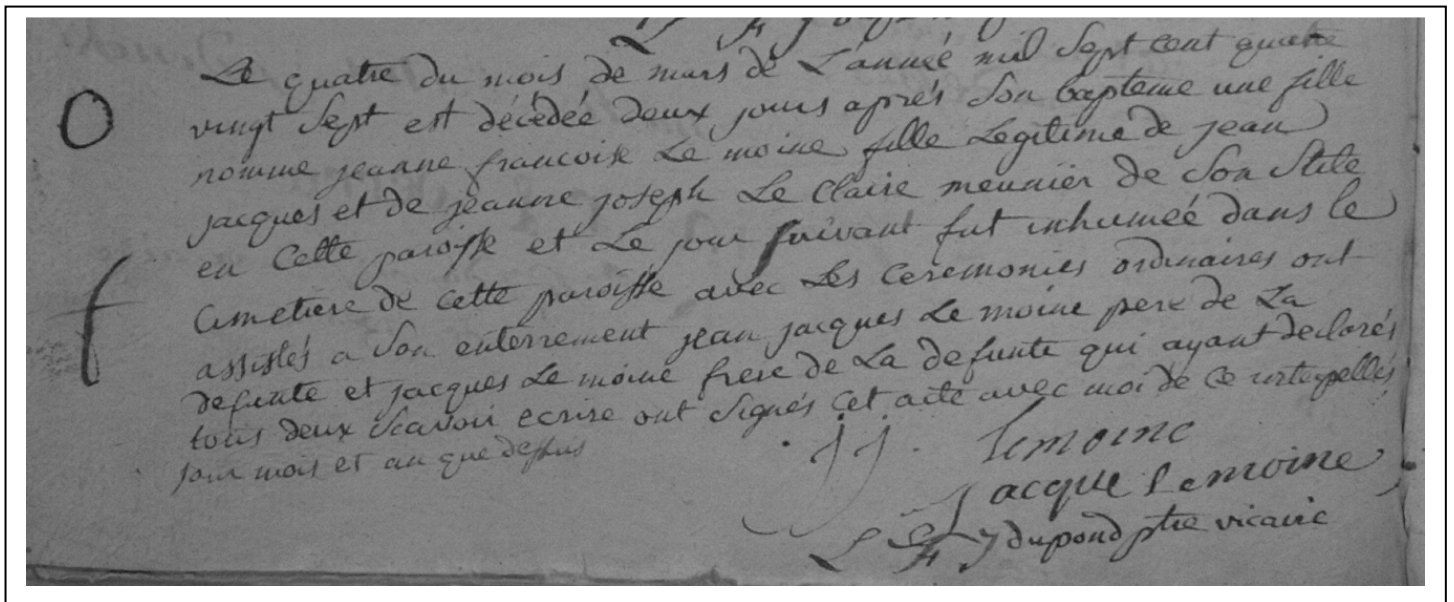 O
Le quatre du mois de mars de L'année mil Sept cent quatre
vingt Sept est décédée deux jours aprés Son bapteme une fille
nomme jeanne francoise Le moine fille Legitime de jean
jacques et de jeanne joseph Le Claire meunier de Son Stile
en Cette paroisse et Le jour suivant fut inhumeé dans le
Cimetiere de cette paroisse avec Les Ceremonies ordinaires ont
assistés a Son enterrement jean jacques Le moine pere de La
defunte et jacques Le moine frere de La defunte qui ayant declarés
tous deux Scavoir ecrire ont Signés cet acte avec moi de ce interpellés
jour mois et an que dessus
f
jj. lemoine
Jacque lemoine
dupond ptre vicaire